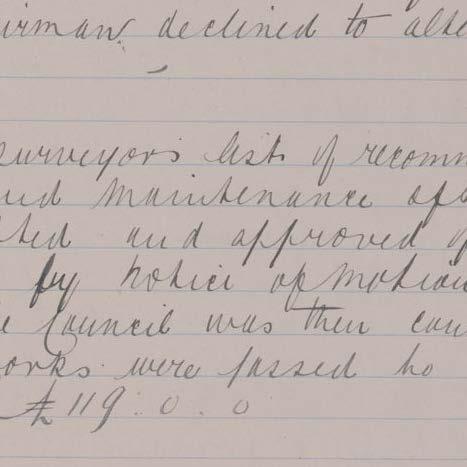 irman declined to alte
surveyors list of recomm
and maintenance of
ted and approved of
by notice of motion
e Council was then can
orks were passed ho
£119.0.0